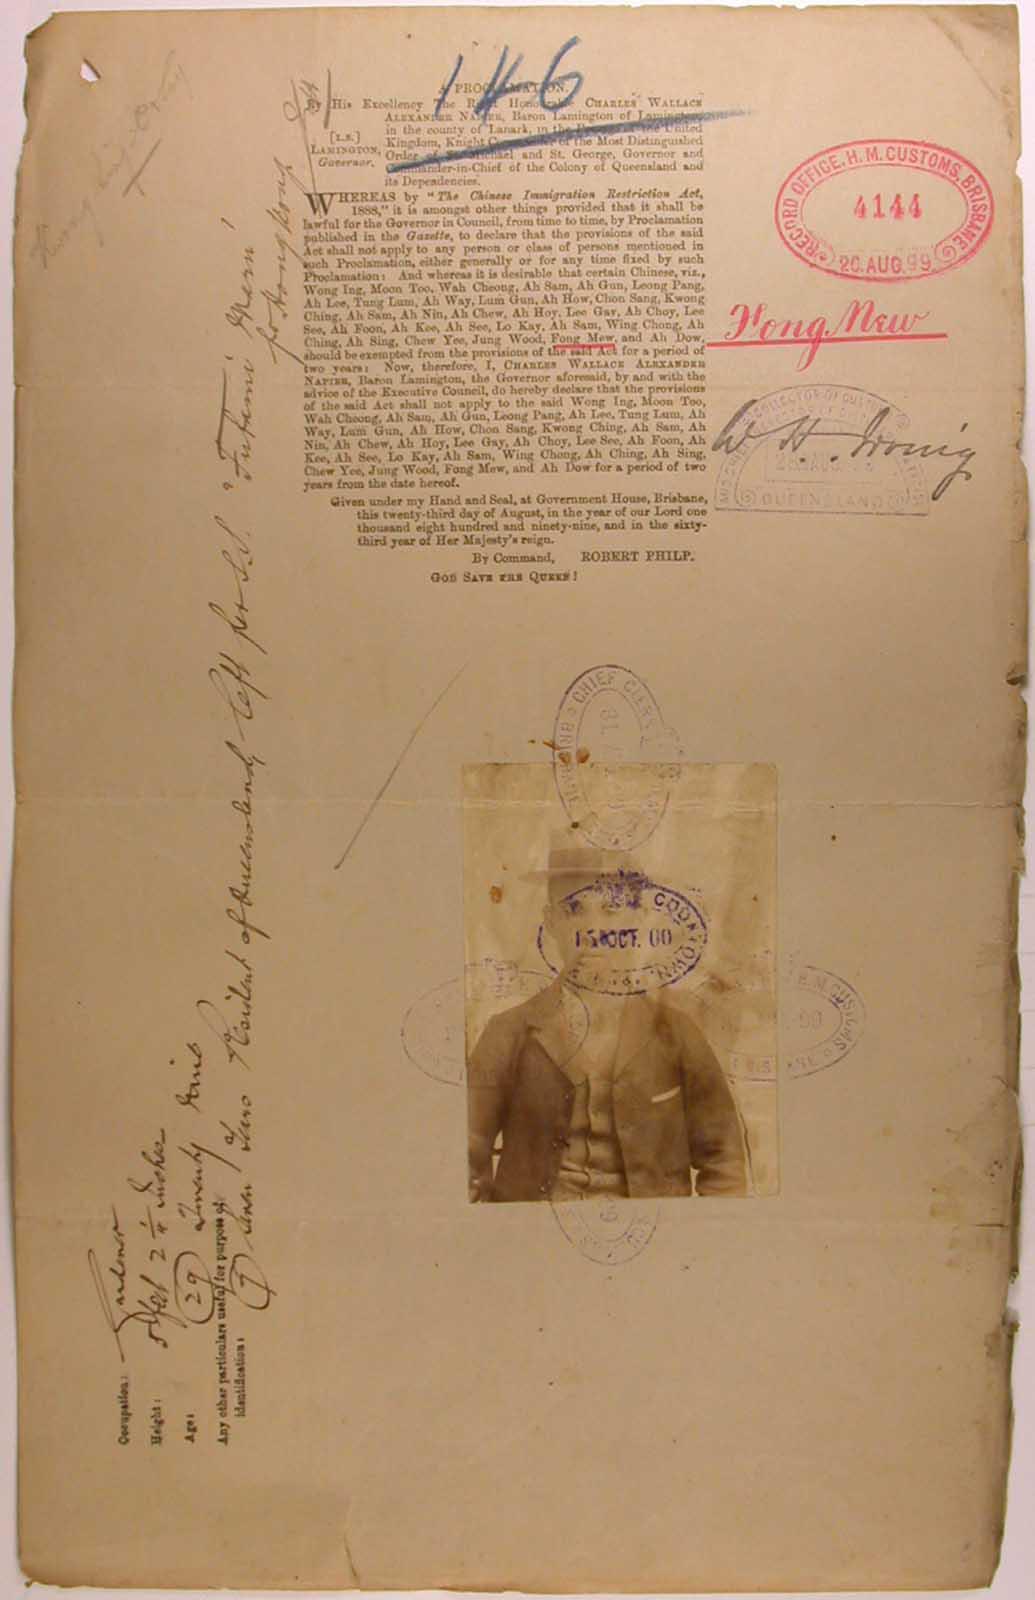 146
A PROCLAMATION.
By His Excellency The Right Honourable CHARLES WALLACE
ALEXANDER NAPIER, Baron Lamington of Lamington,
in the county of Lanark, in the Peerage of the United
[L.S.] Kingdom, Knight Commander of the Most Distinguished
LAMINGTON, Order of St. Michael and St. George, Governor and
Governor. Commander-in-Chief of the Colony of Queensland and
its Dependencies.
WHEREAS by "The Chinese Immigration Restriction Act,
1888," it is amongst other things provided that it shall be
lawful for the Governor in Council, from time to time, by Proclamation
published in the Gazette, to declare that the provisions of the said
Act shall not apply to any person or class of persons mentioned in
such Proclamation, either generally or for any time fixed by such
Proclamation: And whereas it is desirable that certain Chinese, viz.,
Wong Ing, Moon Too, Wah Cheong, Ah Sam, Ah Gun, Leong Pang,
Ah Lee, Tung Lum, Ah Way, Lum Gun, Ah How, Chon Sang, Kwong
Ching, Ah Sam, Ah Nin, Ah Chew, Ah Hoy, Lee Gay, Ah Choy, Lee
See, Ah Foon, Ah Kee, Ah See, Lo Kay, Ah Sam, Wing Chong, Ah
Ching, Ah Sing, Chew Yee, Jung Wood, Fong Mew, and Ah Dow,
should be exempted from the provisions of the said Act for a period of
two years: Now, therefore, I, CHARLES WALLACE ALEXANDER
NAPIER, Baron Lamington, the Governor aforesaid, by and with the
advice of the Executive Council, do hereby declare that the provisions
of the said Act shall not apply to the said Wong Ing, Moon Too,
Wah Cheong, Ah Sam, Ah Gun, Leong Pang, Ah Lee, Tung Lum, Ah
Way, Lum Gun, Ah How, Chon Sang, Kwong Ching, Ah Sam, Ah
Nin, Ah Chew, Ah Hoy, Lee Gay, Ah Choy, Lee See, Ah Foon, Ah
Kee, Ah See, Lo Kay, Ah Sam, Wing Chong, Ah Ching, Ah Sing,
Chew Yee, Jung Wood, Fong Mew, and Ah Dow for a period of two
years from the date hereof.
Given under my Hand and Seal, at Government House, Brisbane,
this twenty-third day of August, in the year of our Lord one
thousand eight hundred and ninety-nine, and in the sixty-
third year of Her Majesty's reign.
By Command, ROBERT PHILP.
GOD SAVE THE QUEEN!
RECORD OFFICE, H. M. CUSTOMS, BRISBANE
4144
26 AUG. 99
Fong Mew
COLLECTOR OF CUSTOMS
QUEENSLAND
W. H. Irving
CHIEF CLERK
BRISBANE
COOKTOWN
15 OCT. 00
H. M. CUSTOMS
Occupation: Gardener
Height: 5 feet 2 1/4 Inches
Age: (29) Twenty Nine
Any other particulars useful for purpose of
identification: (7) Seven Years Resident of Queensland, left per S.S. "Futami Maru"
for Hongkong